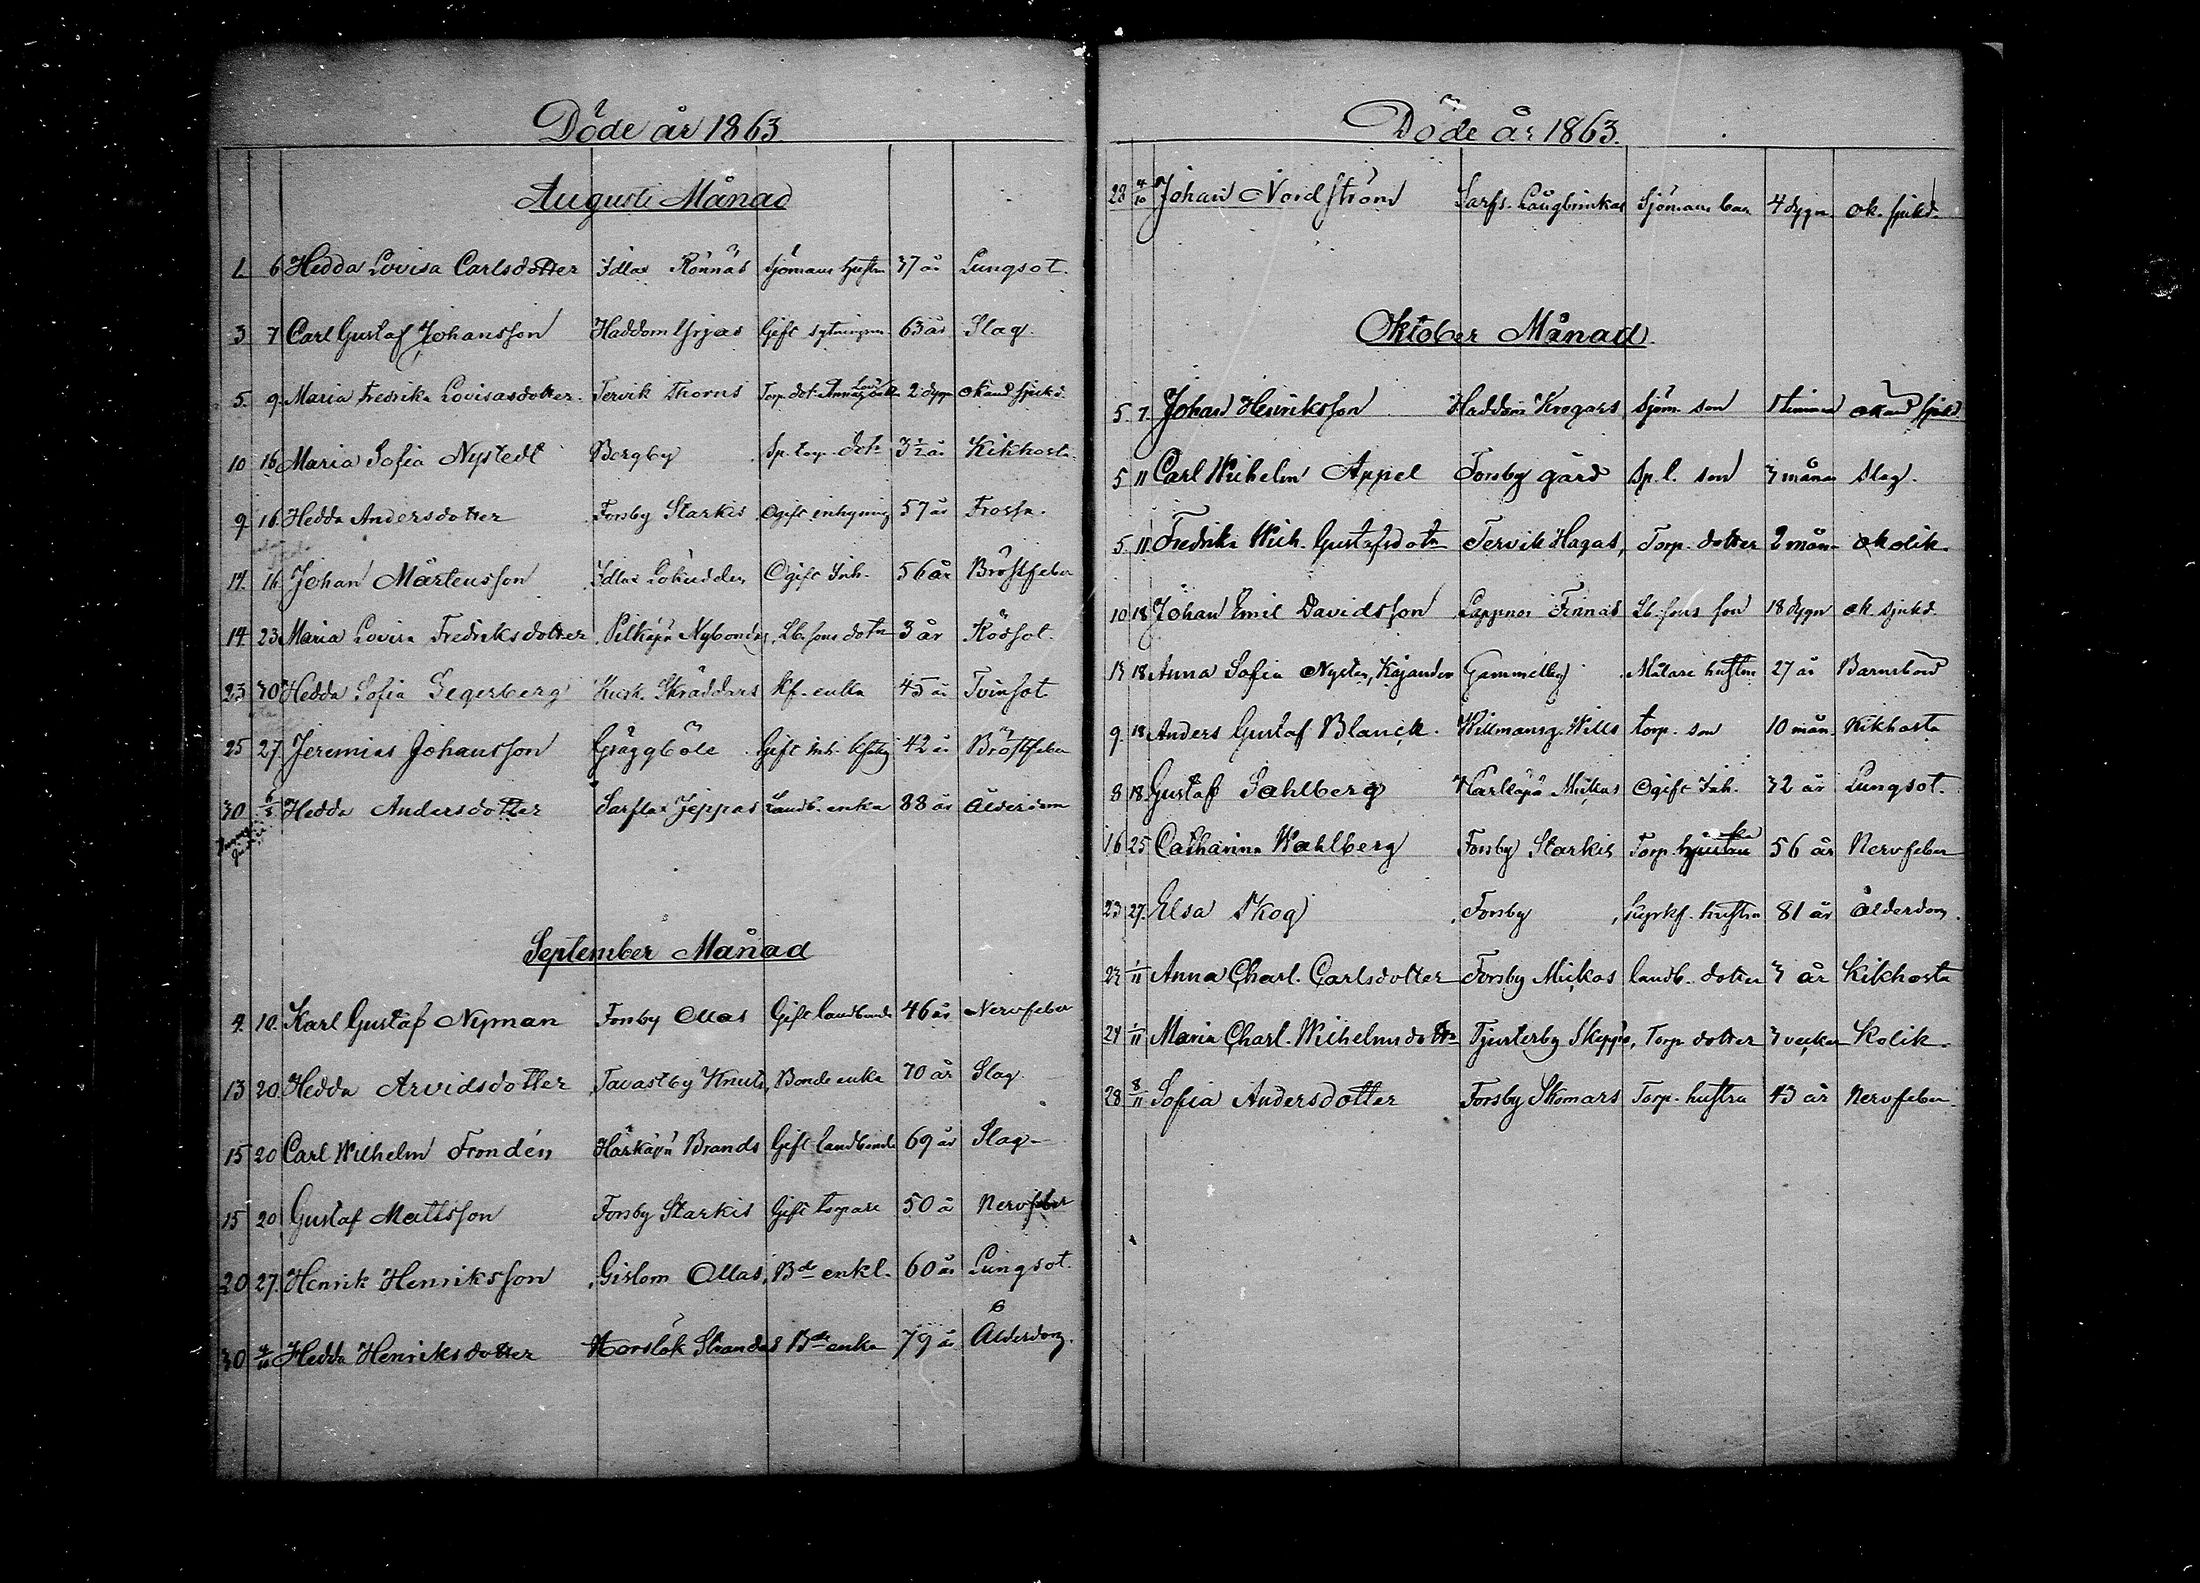 Döde år 1863.
Augusti Månad
1. 6 Hedda Lovisa Carlsdotter Idlax Rönnäs Sjömans hustru 37 år Lungsot.
3 7 Carl Gustaf Johansson Haddom Yrjas Gift sytningsm 63 år Slag.
5. 9. Maria Fredrika Lovisasdotter. Tervik Thorns Torp. dot. Anna 2 dygn okänd sjukd.
10 16 Maria Sofia Nystedt Bergby Sp. torp. dotr 3½ år Kikhosta
9. 16. Hedda Andersdotter Forsby Starkis Ogift inhysning 57 år Frossa.
14. 16. Johan Mårtensson Idlax Lökudden Ogift Inh. 56 år Bröstfeber
14. 23. Maria Lovisa Fredriksdotter Pitkäpä Nybondas Lb. sons dotr 3 år Rödsot.
23 30 Hedda Sofia Segerberg Kusk. Skräddars kf. enka 45 år Tvinsot
25 27. Jeremias Johansson Gräggböle Gift inh. 42 år Bröstfeber
30 Hedda Andersdotter Sarflax Jeppas Landb. enka 88 år Ålderdom
September Månad
4. 10. Karl Gustaf Nyman Forsby Ollas Gift landbonde 46 år Nervfeber
13 20. Hedda Arvidsdotter Tavastby Knuts, Bonde enka 70 år Slag
15 20 Carl Wilhelm Frondén Härkäpä Brands Gift landbonde 69 år Slag
15 20 Gustaf Mattsson Forsby Starkis Gift torpare 50 år Nervfeber
20 27. Henrik Henriksson Gislom Ollas, Bde enkl. 60 år Lungsot.
30 4/10 Hedda Henriksdotter Horslök Strandas Bde enka 79 år Ålderdom.
Döde år 1863.
28 4/10 Johan Nordström Sarfs. Långbrinkas Sjömans barn 4 dygn ok. sjukd.
Oktober Månad.
5. 7. Johan Henriksson Haddom Krogars Sjöm. son 1 timma okänd sjukd
5 11 Carl Wilhelm Appel Forsby gård Sp. l. son 3 månad Slag.
5. 11. Fredrika Wilh. Gustafsdotr Tervik Hagas, Torp. dotter 2 mån kolik.
10 18 Johan Emil Davidsson Lappnor Finnas Lb. sons son 18 dygn ok. sjukd.
13 18 Anna Sofia Nysten, Kajander Gammelby Målare hustru 27 år Barnsbörd
9. 18 Anders Gustaf Blanck. Willmansg. Wills torp. son 10 mån. Kikhosta
8 18. Gustaf Sahlberg Härkäpä Mickas Ogift Inh. 32 år Lungsot.
16 25 Catharina Wahlberg Forsby Starkis Torp. hustru 56 år Nervfeber
23 27. Elsa Skog Forsby hustru 81 år Ålderdom.
23 1/11 Anna Charl. Carlsdotter Forsby Mickas landb. dotter 3 år Kikhosta
24 1/11 Maria Charl. Wilhelmsdotr Tjusterby Skepps, Torp. dotter 3 veckor Kolik.
28 8/11 Sofia Andersdotter Forsby Skomars Torp. hustru 43 år Nervfeber.